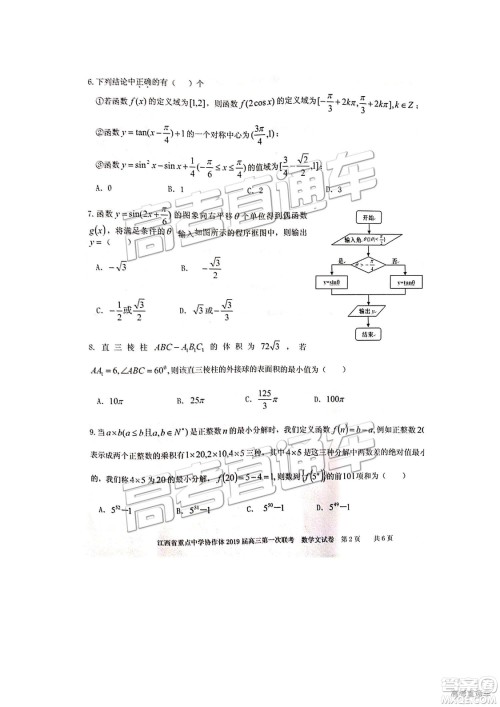 6. 下列结论中正确的有（ ）个
①若函数 f(x) 的定义域为[1,2]，则函数 f(2cos x) 的定义域为[-π/3+2kπ, π/3+2kπ], k∈Z；
②函数 y=tan(x-π/4)+1 的一个对称中心为(3π/4,1)；
③函数 y=sin²x-sin x+1/4 (-π/6≤x≤π/4) 的值域为[3/4-√2/2,1]
A. 0 B. 1 C. 2 D. 3
7. 函数 y=sin(2x+π/6) 的图象向右平移 θ 个单位得到偶函数
g(x)，将满足条件的 θ 输入如图所示的程序框图中，则输出
y=（ ）
A. -√3 B. -√3/2
C. -1/2或√3/2 D. √3或-√3
开始
输入角
是
否
输出 y
结束
8. 直三棱柱 ABC-A₁B₁C₁ 的体积为 72√3，若
AA₁=6, ∠ABC=60°, 则该直三棱柱的外接球的表面积的最小值为（ ）
A. 10π B. 25π C. 125/3 π D. 100π
9. 当 a×b(a≤b且a,b∈N*) 是正整数 n 的最小分解时，我们定义函数 f(n)=b-a, 例如正整数 20
表示成两个正整数的乘积有 1×20,2×10,4×5 三种，其中 4×5 是这三种分解中两数差的绝对
的，我们称 4×5 为 20 的最小分解，f(20)=5-4=1, 则数列{f(5ⁿ)}的前101项和为（ ）
A. 5⁵²-1 B. 5⁵¹-1 C. 5⁵⁰-1 D. 5⁴⁹-1
江西省重点中学协作体 2019 届高三第一次联考 数学文试卷 第 2 页 共 6 页
高考直通车
高考直通车